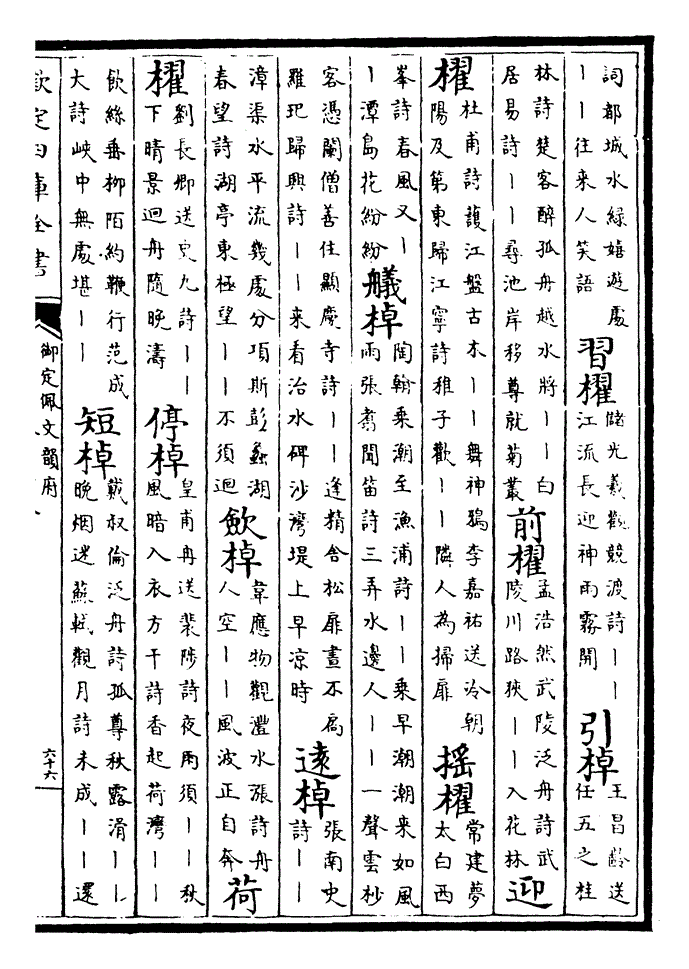 詞都城水綠嬉遊處
丨丨往来人笑語
習櫂
儲光羲觀競渡詩丨丨
江流長迎神雨霧開
引棹
王昌齡送
任五之桂
林詩楚客醉孤舟越水將丨丨白
居易詩丨丨尋池岸移尊就菊叢
前櫂
孟浩然武陵泛舟詩武
陵川路狹丨丨入花林
迎
櫂
杜甫詩䕶江盤古木丨丨舞神鴉李嘉祐送泠朝
陽及第東歸江寧詩稚子歡丨丨隣人為掃扉
揺櫂
常建夢
太白西
峯詩春風又丨
丨潭島花紛紛
艤棹
陶翰乘潮至漁浦詩丨丨乘早潮潮来如風
雨張喬聞笛詩三弄水邊人丨丨一聲雲杪
客憑闌僧善住顯慶寺詩丨丨逢精舍松扉晝不扃
羅玘歸興詩丨丨来看治水碑沙灣堤上早凉時
遠棹
張南史
詩丨丨
漳渠水平流幾處分項斯彭蠡湖
春望詩湖亭東極望丨丨不須迴
歛棹
韋應物觀灃水漲詩舟
人空丨丨風波正自奔
荷
櫂
劉長卿送史九詩丨丨
下晴景迴舟隨晚濤
停棹
皇甫冉送裴陟詩夜雨須丨丨秋
風暗入衣方干詩香起荷灣丨丨
飲絲垂柳陌約鞭行范成
大詩峽中無處堪丨丨
短棹
戴叔倫泛舟詩孤尊秋露滑丨丨
晚烟迷蘇軾觀月詩未成丨丨還
欽定四庫全書
御定佩文韻府
六十六